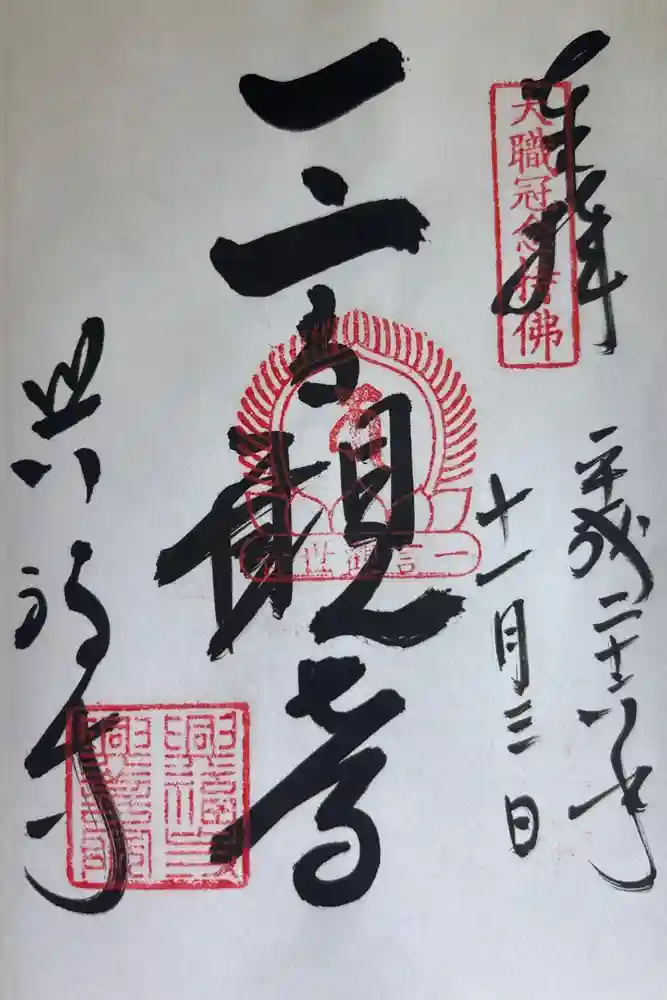 奉拝
大職冠念持佛
平成二十
年
十一月三日
一言観音
一言觀世音
興福寺